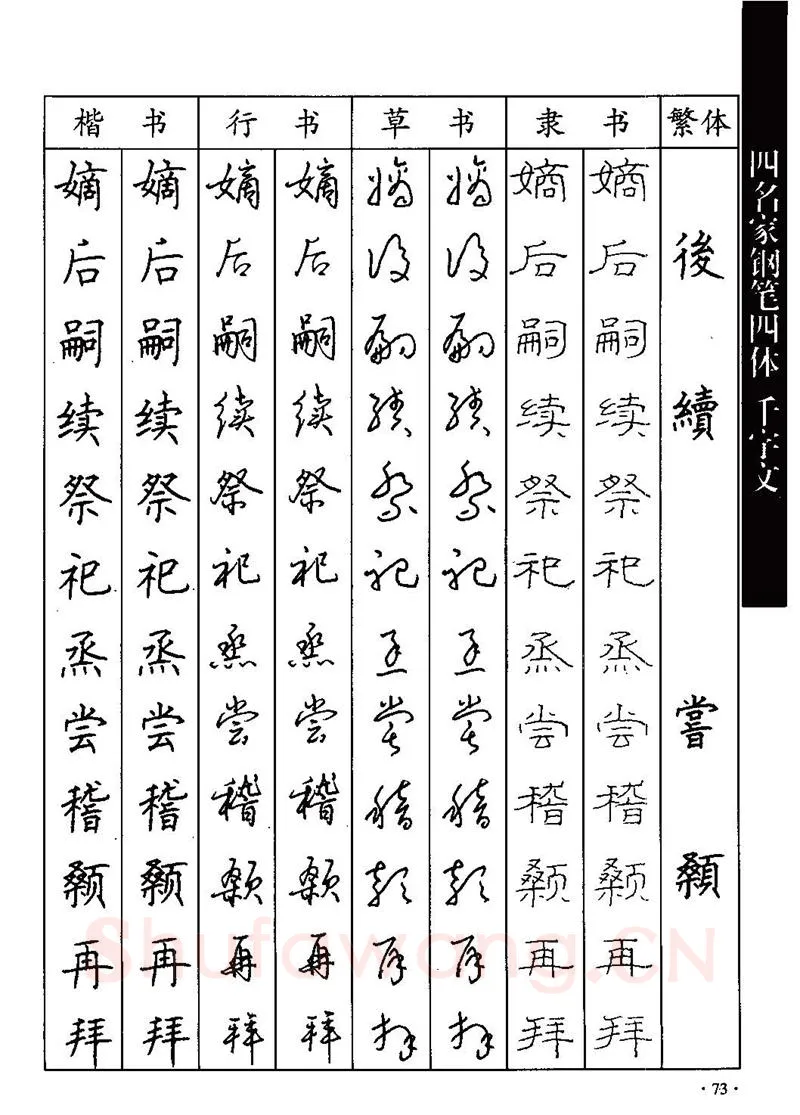 楷书 行书 草书 隶书 繁体
嫡 嫡 嫡 嫡 嫡 嫡 嫡 嫡
后 后 后 后 后 后 后 后 後
嗣 嗣 嗣 嗣 嗣 嗣 嗣 嗣
续 续 续 续 续 续 续 续 續
祭 祭 祭 祭 祭 祭 祭 祭
祀 祀 祀 祀 祀 祀 祀 祀
烝 烝 烝 烝 烝 烝 烝 烝
尝 尝 尝 尝 尝 尝 尝 尝 嘗
稽 稽 稽 稽 稽 稽 稽 稽
颡 颡 颡 颡 颡 颡 颡 颡 顙
再 再 再 再 再 再 再 再
拜 拜 拜 拜 拜 拜 拜 拜
四名家钢笔四体 千字文
Shufawang.CN
·73·